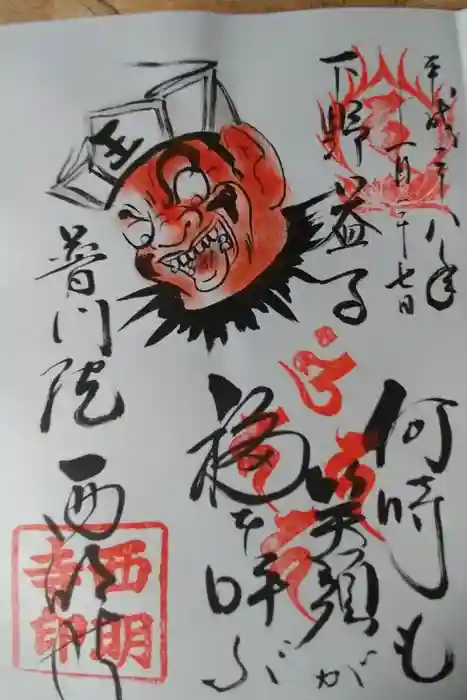 平成二十八年
一月二十七日
下野益子
何時も
笑顔が
福を呼ぶ
王
普門院 西明寺
西明
寺印